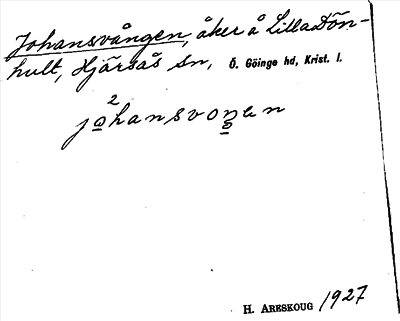 Johansvången, åker å Lilla Dön-
hult, Hjärsås sn, Ö. Göinge hd, Krist. l.
2
johansvonen
H. ARESKOUG 1927